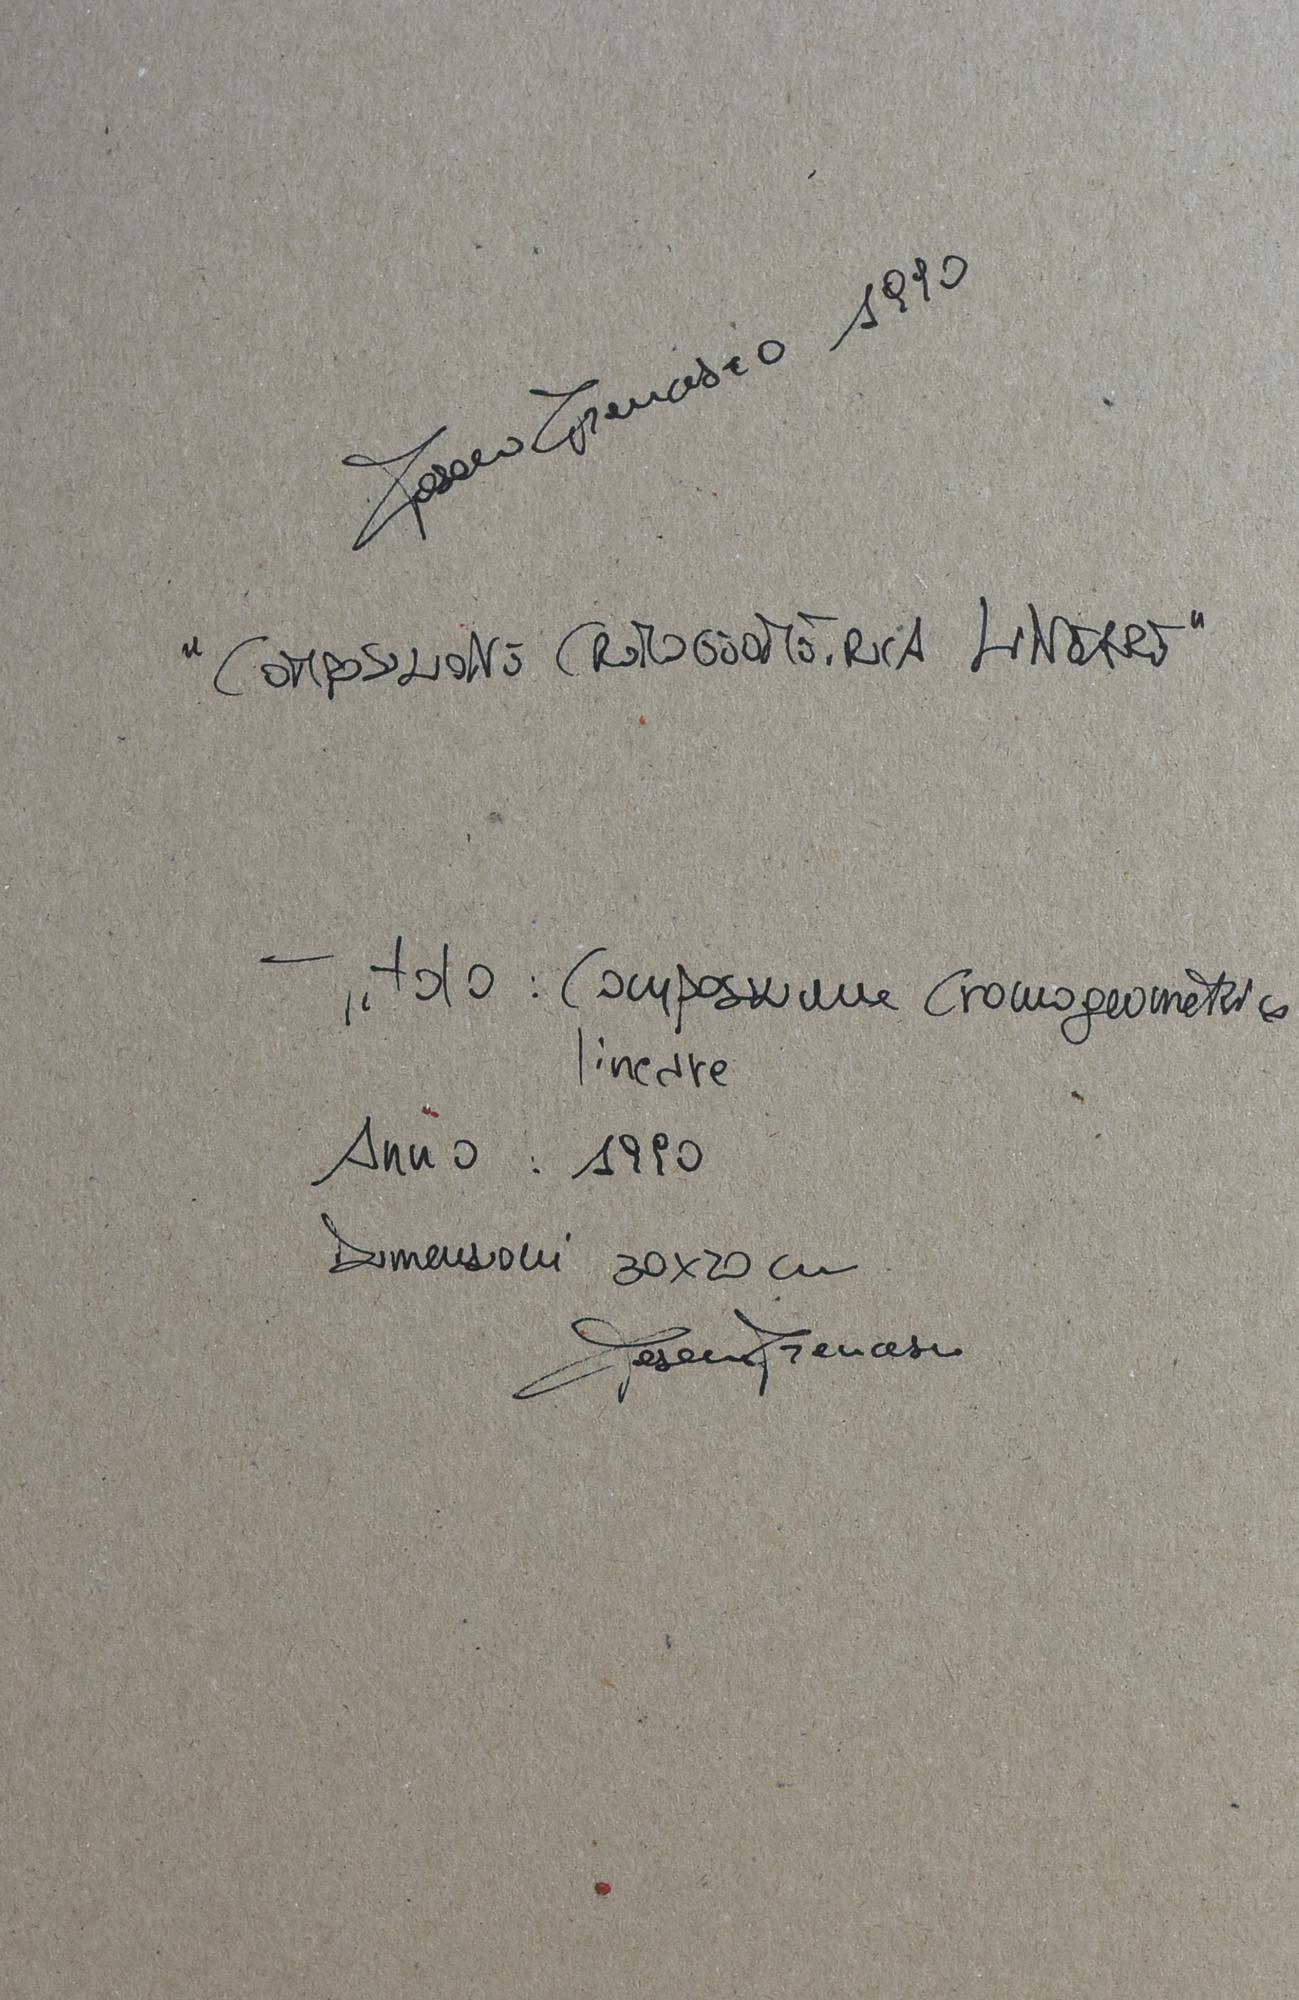 Francesco 1990
"COMPOSIZIONE CROMOGEOMETRICA LINEARE"
Titolo : Composizione Cromogeometrica
lineare
Anno : 1990
Dimensioni 30x20 cm
Francesco